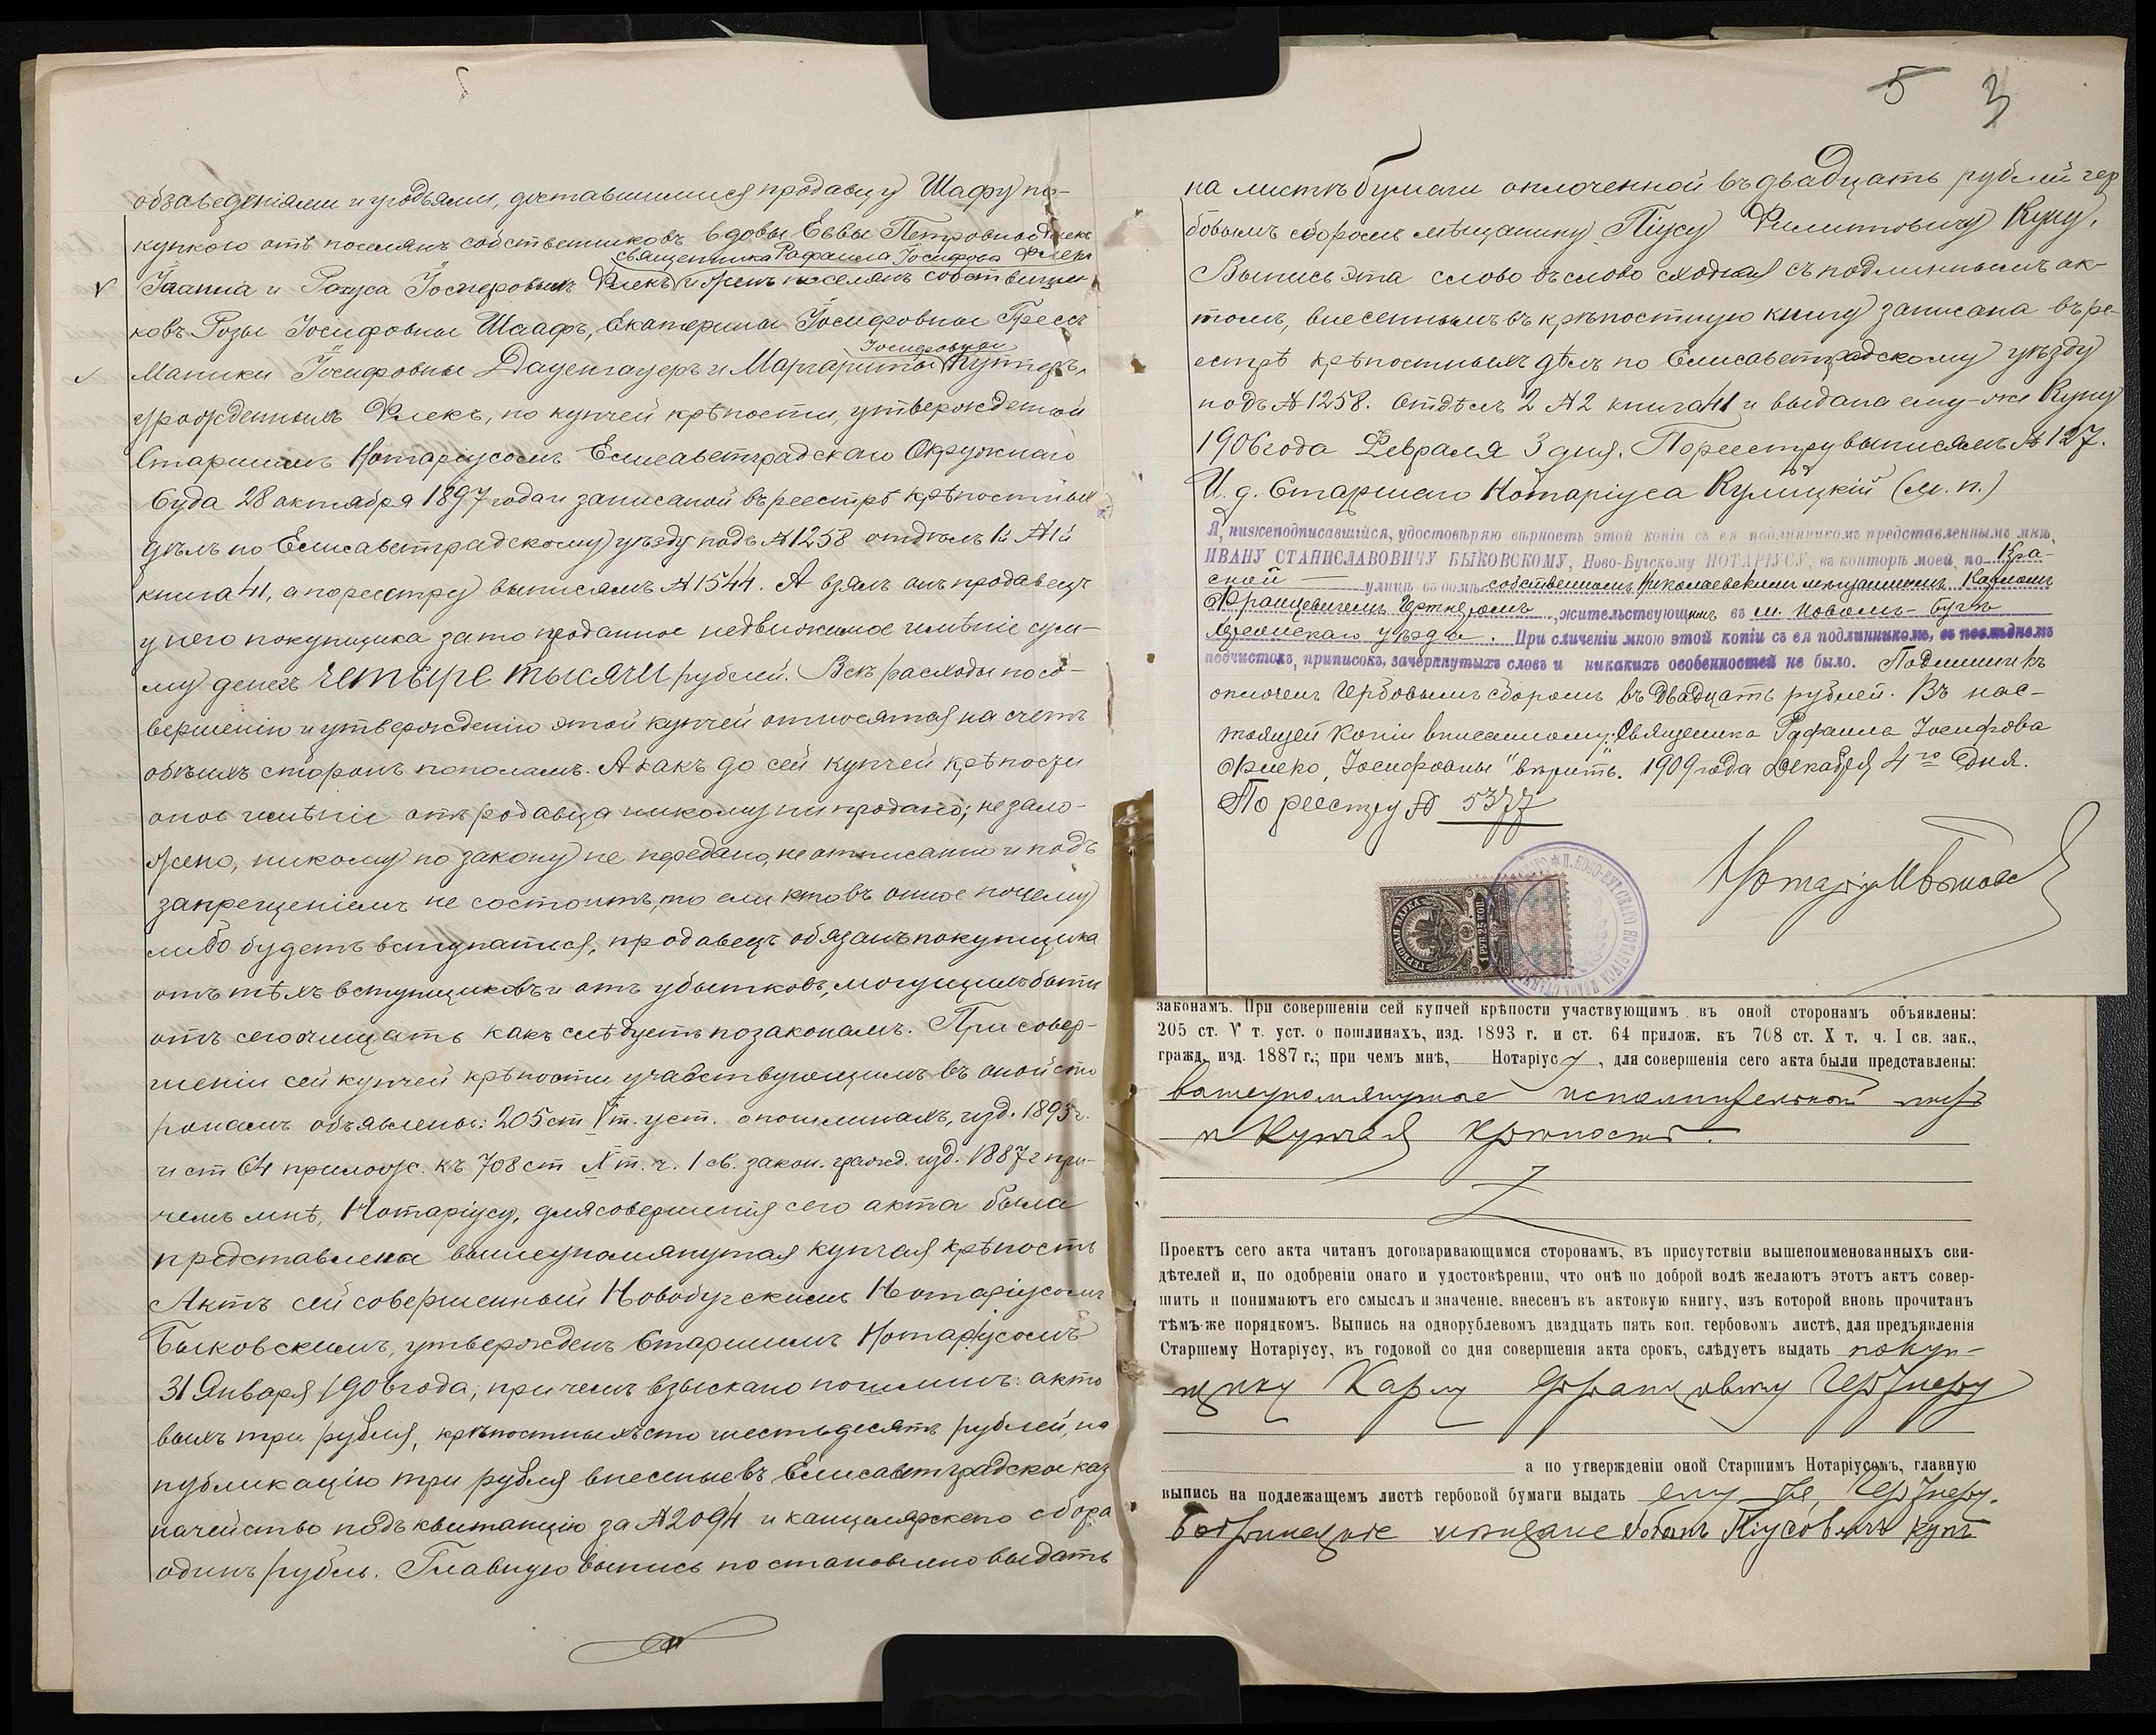 обзаведеніями и угодьями, доставшимися продавцу Шафу по-
купкою отъ поселянъ собственниковъ вдовы Еввы Петровны Флекъ
священника Рафаила Іосифова Флекъ
Іоанна и Рохуса Іосифовыхъ Флекъ и женъ поселянъ собственни-
ковъ Розы Іосифовны Шаафъ, Екатерины Іосифовны Гресъ
Іосифовны
Маники Іосифовны Дауенгауеръ и Маргариты Куттеръ,
урожденныхъ Флекъ, по купчей крѣпости, утвержденной
Старшимъ Нотаріусомъ Елисаветградскаго Окружнаго
Суда 28 октября 1897 года и записаной въ реестрѣ крѣпостныхъ
дѣлъ по Елисаветградскому уѣзду подъ № 1258 отдѣлъ 1й № 1й
книга 41, а по реестру выписямъ № 1544. А взялъ онъ продавецъ
у него покупщика за то проданное недвижимое имѣніе сум-
му денегъ четыре тысячи рублей. Всѣ расходы по со-
вершенію и утвержденію этой купчей относятся на счетъ
обѣихъ сторонъ пополамъ. А какъ до сей купчей крѣпости
оное имѣніе отъ продавца никому ни продано, не зало-
жено, никому по закону не передано, не отписанно и подъ
запрещеніемъ не состоитъ, то если кто въ оное почему
либо будетъ вступаться, продавецъ обязанъ покупщика
отъ тѣхъ вступщиковъ и отъ убытковъ, могущихъ быть
отъ сего очищать какъ слѣдуетъ по законамъ. При совер-
шеніи сей купчей крѣпости участвующимъ въ оной сто
ронамъ объявлены: 205 ст V т. уст. о пошлинахъ, изд. 1893 г.
и ст 64 прилож. къ 708 ст X т. ч. 1 св. закон. гражд. изд. 1887 г при-
чемъ мнѣ, Нотаріусу, для совершенія сего акта была
представлена вышеупомянутая купчая крѣпость
Актъ сей совершенный Новобугскимъ Нотаріусомъ
Быковскимъ, утвержденъ Старшимъ Нотаріусомъ
31 Января 1906 года, при чемъ взыскано пошлинъ: акто
выхъ три рубля, крѣпостныхъ сто шестьдесятъ рублей, на
публикацію три рубля внесеные въ Елисаветградское каз
начейство подъ квитанцію за № 2094 и канцелярскаго сбора
одинъ рубль. Главную выпись постановлено выдать
5 3
на листѣ бумаги оплоченной въ двадцать рублей гер
бовымъ сборомъ мѣщанину Піусу Филипповичу Куну.
Выпись эта слово въ слово сходная съ подлиннымъ ак-
томъ, внесеннымъ въ крѣпостную книгу записана въ ре-
естрѣ крѣпостныхъ дѣлъ по Елисаветградскому уѣзду
подъ № 1258. Отдѣлъ 2 № 2 книга 41 и выдана ему-же Куну
1906 года Февраля 3 дня. По реестру выписямъ № 127.
И. д. Старшаго Нотаріуса Кулицкій (м. п.)
Я, нижеподписавшійся, удостовѣряю вѣрность этой копіи съ ея подлинникомъ представленнымъ мнѣ,
ИВАНУ СТАНИСЛАВОВИЧУ БЫКОВСКОМУ, Ново-Бугскому НОТАРІУСУ, въ конторѣ моей, по Кра-
сной — улицѣ въ домѣ собственномъ Николаевскимъ мѣщаниномъ Карломъ
Францевичемъ Гертнеромъ, жительствующимъ въ м. Новомъ-Бугѣ
Херсонскаго уѣзда. При сличеніи мною этой копіи съ ея подлинникомъ, въ послѣднемъ
подчистокъ, приписокъ, зачеркнутыхъ словъ и никакихъ особенностей не было. Подлинникъ
оплоченъ Гербовымъ сборомъ въ двадцать рублей. Въ нас-
тоящей копіи вписанному: „Священника Рафаила Іосифова
Флекъ, Іосифовны" вѣрить. 1909 года Декабря 4го дня.
По реестру № 5377
Нотаріусъ ИБыковск
ГЕРБОВАЯ МАРКА
1 РУБ. 25 КОП.
законамъ. При совершеніи сей купчей крѣпости участвующимъ въ оной сторонамъ объявлены:
205 ст. V т. уст. о пошлинахъ, изд. 1893 г. и ст. 64 прилож. къ 708 ст. X т. ч. I св. зак.,
гражд. изд. 1887 г.; при чемъ мнѣ, Нотаріусу, для совершенія сего акта были представлены:
вышеупомянутые исполнительной листъ
и Купчая крѣпость.
Проектъ сего акта читанъ договаривающимся сторонамъ, въ присутствіи вышепоименованныхъ сви-
дѣтелей и, по одобреніи онаго и удостовѣреніи, что онѣ по доброй волѣ желаютъ этотъ актъ совер-
шить и понимаютъ его смыслъ и значеніе. внесенъ въ актовую книгу, изъ которой вновь прочитанъ
тѣмъ-же порядкомъ. Выпись на однорублевомъ двадцать пять коп. гербовомъ листѣ, для предъявленія
Старшему Нотаріусу, въ годовой со дня совершенія акта срокъ, слѣдуетъ выдать покуп-
щику Карлу Францовичу Гертнеру
а по утвержденіи оной Старшимъ Нотаріусомъ, главную
выпись на подлежащемъ листѣ гербовой бумаги выдать ему же, Гертнеру.
Бобринецкіе мѣщане Піусовичъ Кунъ